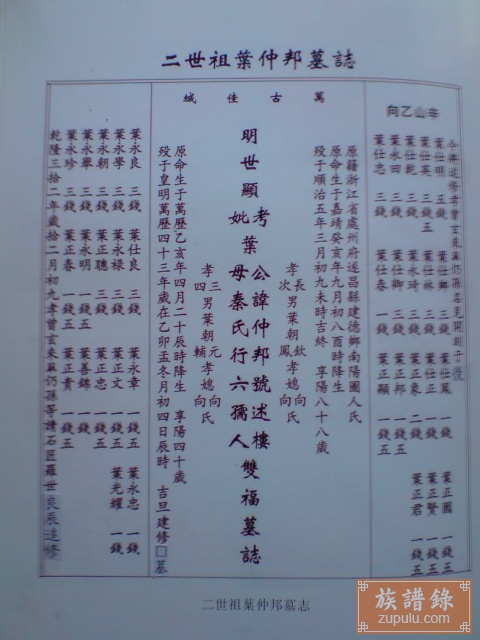 二世祖葉仲邦墓誌
萬古佳城
辛山乙向
葉仕明 五錢
葉仕英 三錢五
葉仕乾 三錢
葉永田 三錢
葉仕忠 三錢
葉仕卿 三錢
葉永琦 三錢
葉仕鳳 一錢
葉仕正 一錢
葉正象 二錢
葉正邦 一錢五
葉正顯 一錢五
葉正國 一錢五
葉正賢 一錢五
葉正君 一錢五
原籍浙江省處州府遂昌縣建德鄉南陽國人氏
原命生于嘉靖癸亥年九月初八酉時降生
歿于順治五年三月初九未時吉終 享陽八十八歲
長男葉朝欽 孝媳向氏
孝次男葉朝鳳 孝媳向氏
明世顯考葉公諱仲邦號述樓
妣葉母秦氏行六孺人
雙福墓誌
孝三男葉朝元 孝媳向氏
四男葉朝輔 孝媳向氏
原命生于萬歷乙亥年四月二十辰時降生 享陽四十歲
歿于皇明萬歷四十三年歲在乙卯孟冬月初四日辰時 吉旦建修□墓
葉永良 三錢
葉永學 三錢
葉永朝 三錢
葉永舉 三錢
葉永珍 三錢
葉仕良 三錢
葉永祿 三錢
葉正聰 三錢
葉永明 一錢五
葉正春 一錢五
葉永章 一錢五
葉正文 一錢五
葉正忠 一錢五
葉善錦 一錢五
葉正貴 一錢五
葉永忠 一錢
葉光耀 一錢
乾隆三拾二年歲拾二月初九孝曾玄來蘇仍孫等請石匠羅世良辰造修
二世祖葉仲邦墓志
族譜錄
zupulu.com